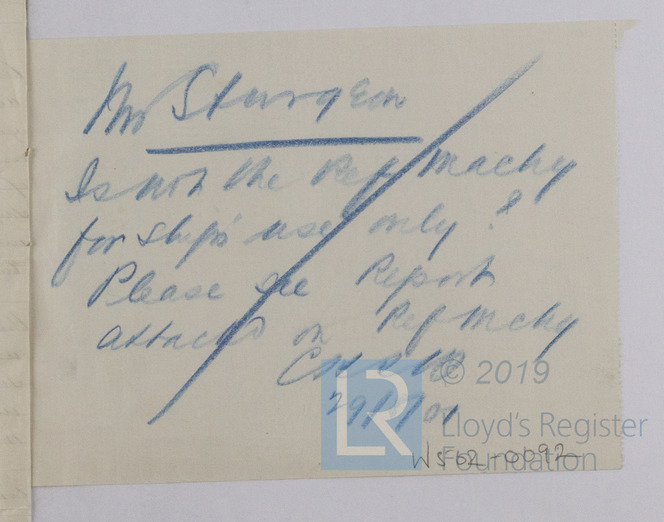 Mr Sturgeon
Is not the Ref Machy
for ship's use only?
Please see Report
attached on Ref Mchy
© 2019
LR
Lloyd's Register
Foundation
WS02-0092